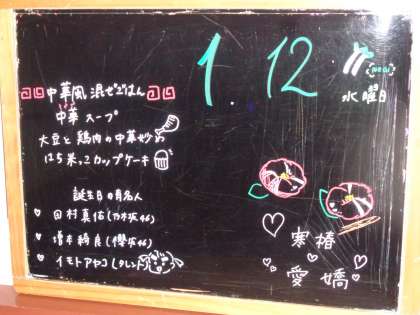 1.12
水曜日
中華風混ぜごはん
中華スープ
大豆と鶏肉の中華炒め
はちみつカップケーキ
誕生日の有名人
♡ 田村真佑(乃木坂46)
♡ 増本綺良(櫻坂46)
♡ イモトアヤコ(タレント)
寒椿
愛嬌